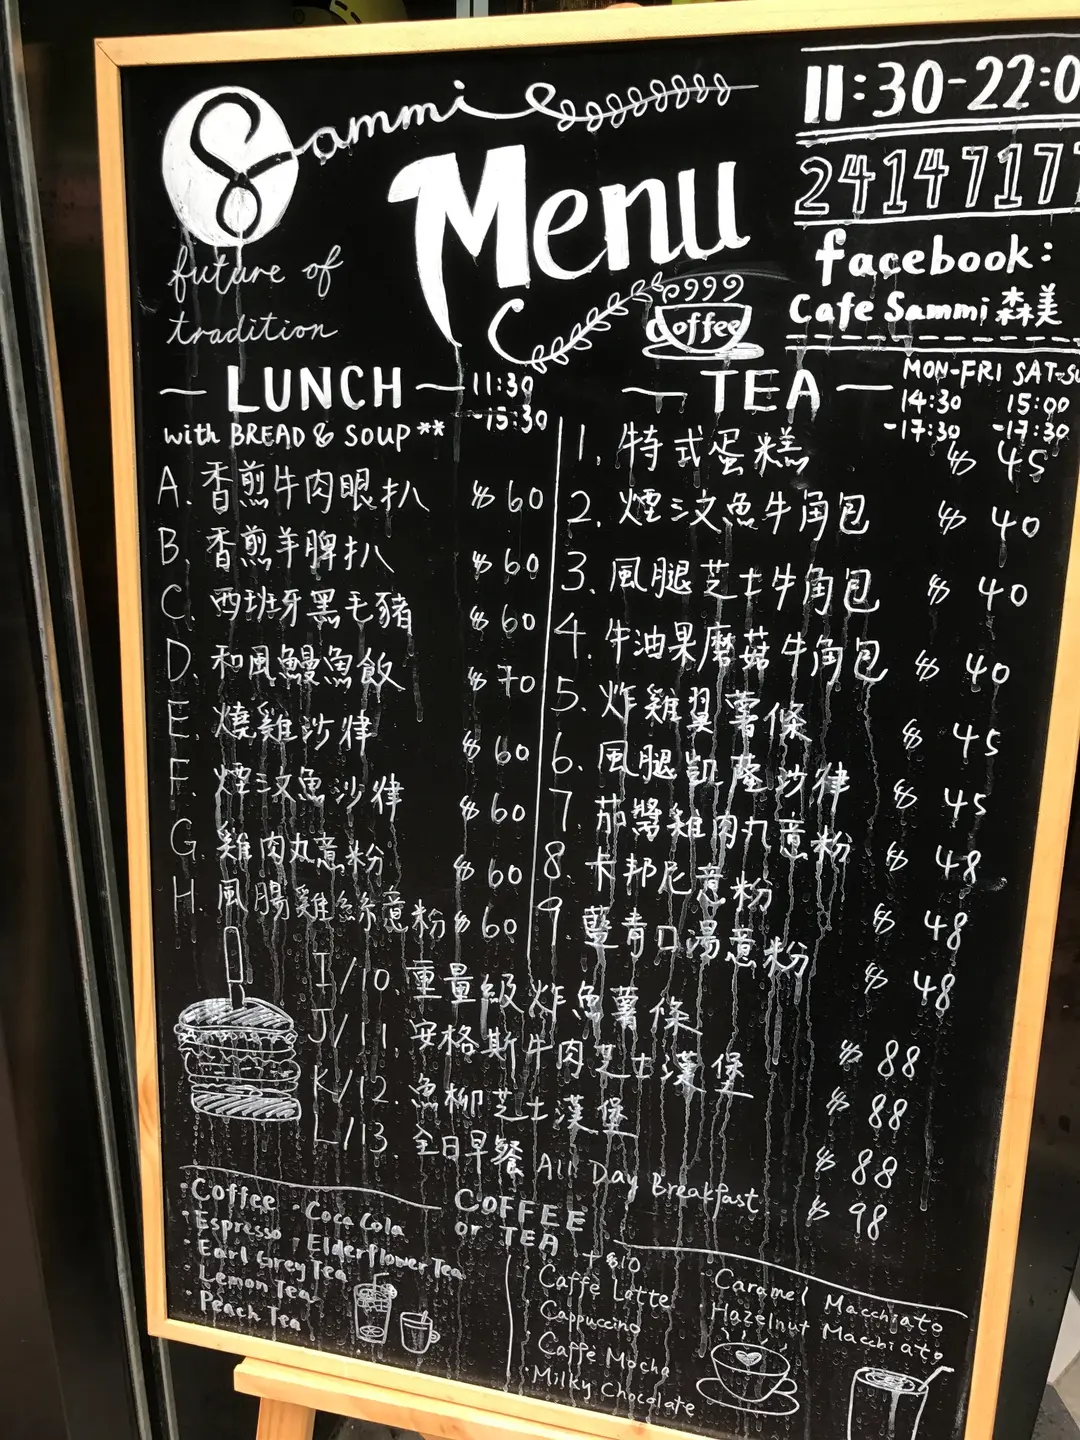 Sammi
future of
tradition
Menu
Coffee
11:30-22:0
2414717
facebook:
Cafe Sammi 森美
LUNCH 11:30
-15:30
with BREAD & SOUP**
A. 香煎牛肉眼扒 $60
B. 香煎羊脾扒 $60
C. 西班牙黑毛豬 $60
D. 和風鰻魚飯 $70
E. 燒雞沙律 $60
F. 煙三文魚沙律 $60
G. 雞肉丸意粉 $60
H. 風腸雞絲意粉 $60
TEA
MON-FRI SAT-SU
14:30 15:00
-17:30 -17:30
1. 特式蛋糕 $45
2. 煙三文魚牛角包 $40
3. 風腿芝士牛角包 $40
4. 牛油果磨菇牛角包 $40
5. 炸雞翼薯條 $45
6. 風腿凱薩沙律 $45
7. 茄醬雞肉丸意粉 $48
8. 卡邦尼意粉 $48
9. 青口湯意粉 $48
I/10. 重量級炸魚薯條 $88
J/11. 安格斯牛肉芝士漢堡 $88
K/12. 魚柳芝士漢堡 $88
L/13. 全日早餐 All Day Breakfast $98
COFFEE
or TEA
·Coffee
·Espresso
·Earl Grey Tea
·Lemon Tea
·Peach Tea
·Coca Cola
·Elderflower Tea
+$10
Caffè Latte
Cappuccino
·Caffè Mocha
·Milky Chocolate
Caramel Macchiato
·Hazelnut Macchiato